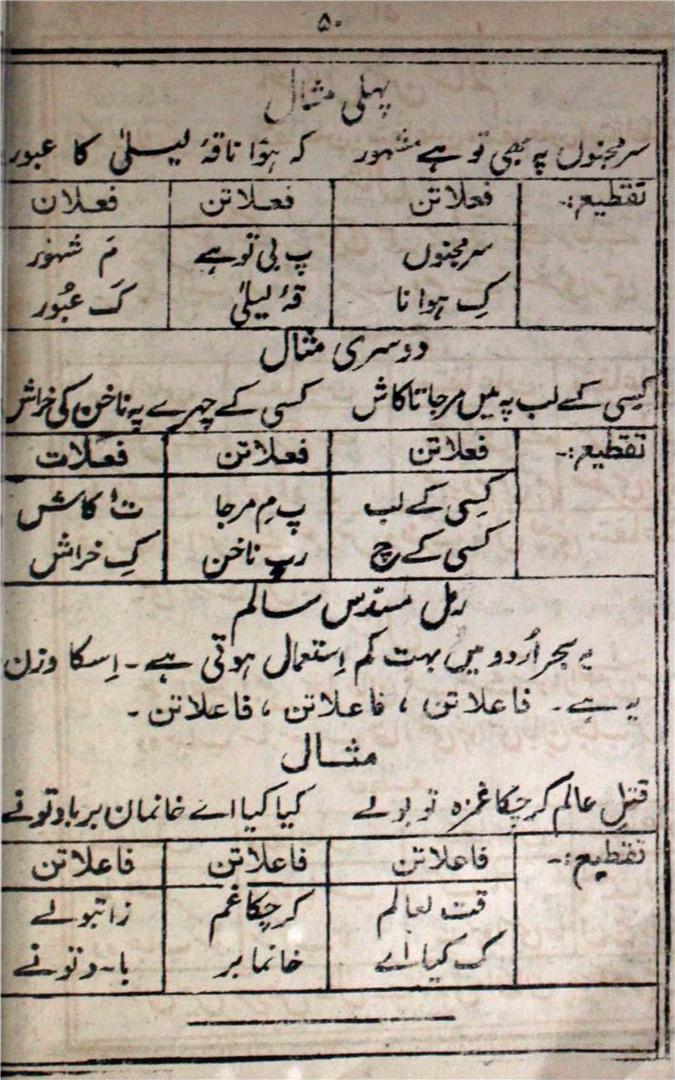 ۵۰
پہلی مثال
سرمجنوں پہ بھی تو ہے مشہور کہ ہوَا ناقۂ لیلیٰ کا عبور
تقطیع:- فعلاتن فعلاتن فعلان
سرمجنوں پ بی توہے مَ شہوٗر
کِ ہوانا قۂ لیلیٰ کَ عبُور
دوسری مثال
کِسی کے لب پہ میں مرجاتا کاش کسی کے چہرے پہ ناخن کی خراش
تقطیع:- فعلاتن فعلاتن فعلات
کِسِی کے لب پ مِ مرجا تَا کاش
کسی کے چِ رپ ناخن کِ خراش
رمل مسدس سالم
یہ بحر اُردو میں بہت کم اِستعمال ہوتی ہے۔ اِسکا وزن
یہ ہے۔ فاعلاتن ، فاعلاتن ، فاعلاتن۔
مثال
قتلِ عالم کرچکا غمزہ تو بولے کیا کیا اے خانماں برباد تونے
تقطیع:- فاعلاتن فاعلاتن فاعلاتن
قت لعالم کرچکاغم زاتبولے
ک کیا اے خانما بر بادتونے